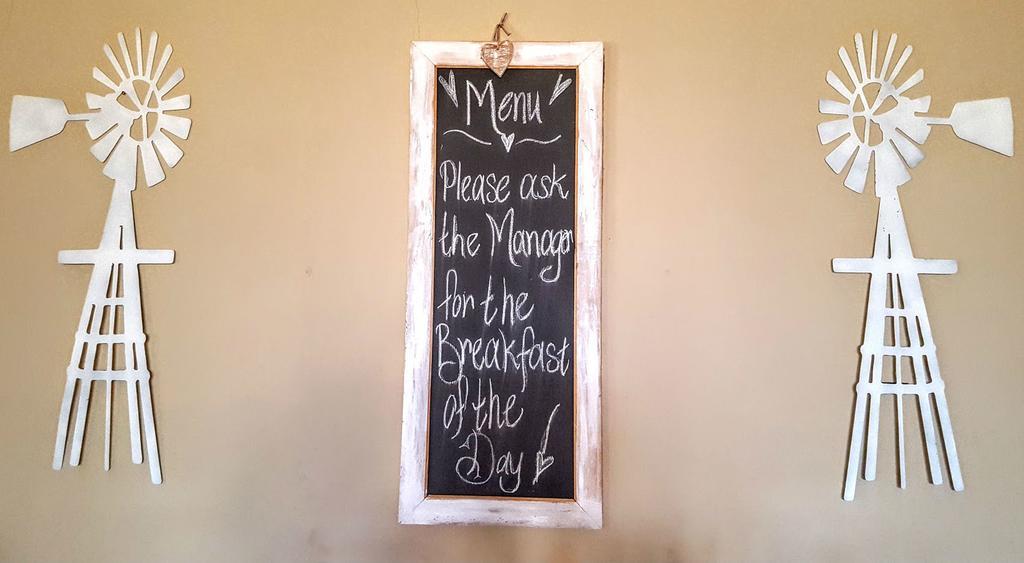 Menu
Please ask
the Manager
for the
Breakfast
of the
Day